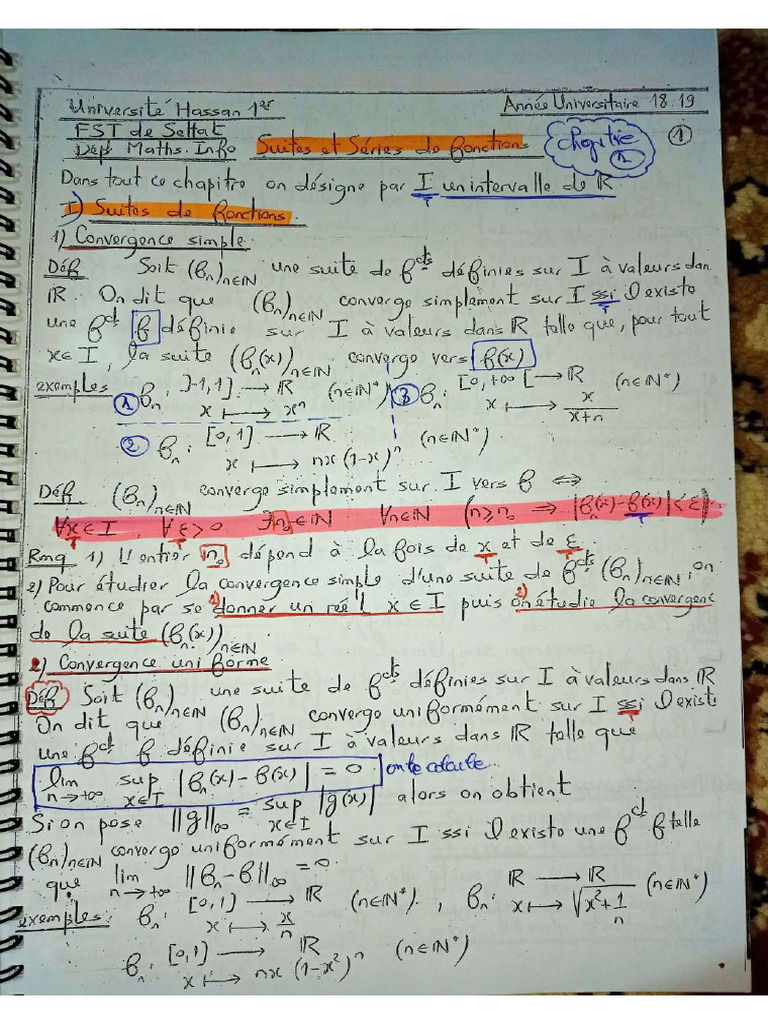 Université Hassan 1er Année Universitaire 18.19
FST de Settat
Dép Maths. Info Suites et Séries de fonctions Chapitre 1
Dans tout ce chapitre on désigne par I un intervalle de ℝ.
I) Suites de fonctions.
1) Convergence simple.
Déf Soit (fn)n∈ℕ une suite de fcts définies sur I à valeurs dan
ℝ. On dit que (fn)n∈ℕ converge simplement sur I ssi il existe
une fct f définie sur I à valeurs dans ℝ telle que, pour tout
x∈I, la suite (fn(x))n∈ℕ converge vers f(x)
exemples ① fn: ]-1,1] → ℝ (n∈ℕ*) ③ fn: [0,+∞[ → ℝ (n∈ℕ*)
x ↦ xⁿ x ↦ x/(x+n)
② fn: [0,1] → ℝ (n∈ℕ*)
x ↦ nx(1-x)ⁿ
Déf (fn)n∈ℕ converge simplement sur I vers f ⇔
∀x∈I ∀ε>0 ∃n₀∈ℕ ∀n∈ℕ (n≥n₀ ⇒ |fn(x)-f(x)|<ε)
Rmq 1) L'entier n₀ dépend à la fois de x et de ε.
2) Pour étudier la convergence simple d'une suite de fcts (fn)n∈ℕ, on
commence par se 1) donner un réel x∈I puis 2) on étudie la convergenc
de la suite (fn(x))n∈ℕ
2) Convergence uniforme
Déf Soit (fn)n∈ℕ une suite de fcts définies sur I à valeurs dans ℝ
On dit que (fn)n∈ℕ converge uniformément sur I ssi il existe
une fct f définie sur I à valeurs dans ℝ telle que
lim n→+∞ sup x∈I |fn(x)-f(x)| = 0 on le calcule.
Si on pose ||g||∞ = sup x∈I |g(x)| alors on obtient
(fn)n∈ℕ converge uniformément sur I ssi il existe une fct f telle
que lim n→+∞ ||fn-f||∞ = 0.
exemples: fn: [0,1] → ℝ (n∈ℕ*), fn: ℝ → ℝ (n∈ℕ*)
x ↦ x/n x ↦ √(x²+1/n)
fn: [0,1] → ℝ (n∈ℕ*)
x ↦ nx(1-x²)ⁿ